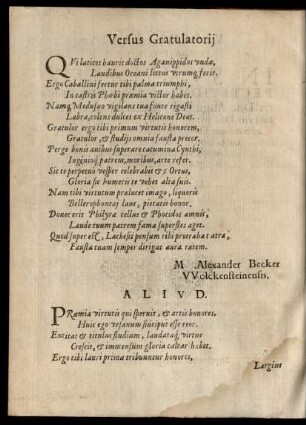 Versus Gratulatorij
QVi latices haurit doctos Aganippidos undæ,
Laudibus Oceani littus utrumq; ferit.
Ergo Caballini fertur tibi palma triumphi,
In castris Phœbi præmia victor habet.
Namq; Medusæo vigilans tua fonte rigasti
Labra, colens dulces ex Helicone Deas.
Gratulor ergo tibi primum virtutis honorem,
Gratulor, & studijs omnia fausta precor.
Perge bonis avibus superare cacumina Cynthi,
Ingenioq; patrem, moribus, arte refer.
Sic te perpetuò vesper celebrabit & Ortus,
Gloria sic humeris te vehet alta suis.
Nam tibi virtutum prælucet imago, liquoris
Bellerophontæi laus, pietatis honor.
Donec erit Philyræ tellus & Phocidos amnis,
Laude tuum patrem fama superstes aget.
Quod super est, Lachesis pensum tibi proterbat atræ,
Fausta tuam semper dirigat aura ratem.
M Alexander Becker
VVolckensteinensis.
ALIVD.
PRæmia virtutis qui spernit, & artis honores,
Huic ego vesanum sinciput esse reor.
Excitat & titulus studium, laudataq; virtus
Crescit, & immensum gloria calcar habet.
Ergo tibi lauri primæ tribuuntur honores,
Largius